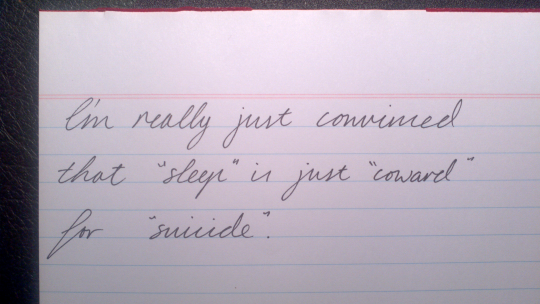 I'm really just convinced
that "sleep" is just "coward"
for "suicide".